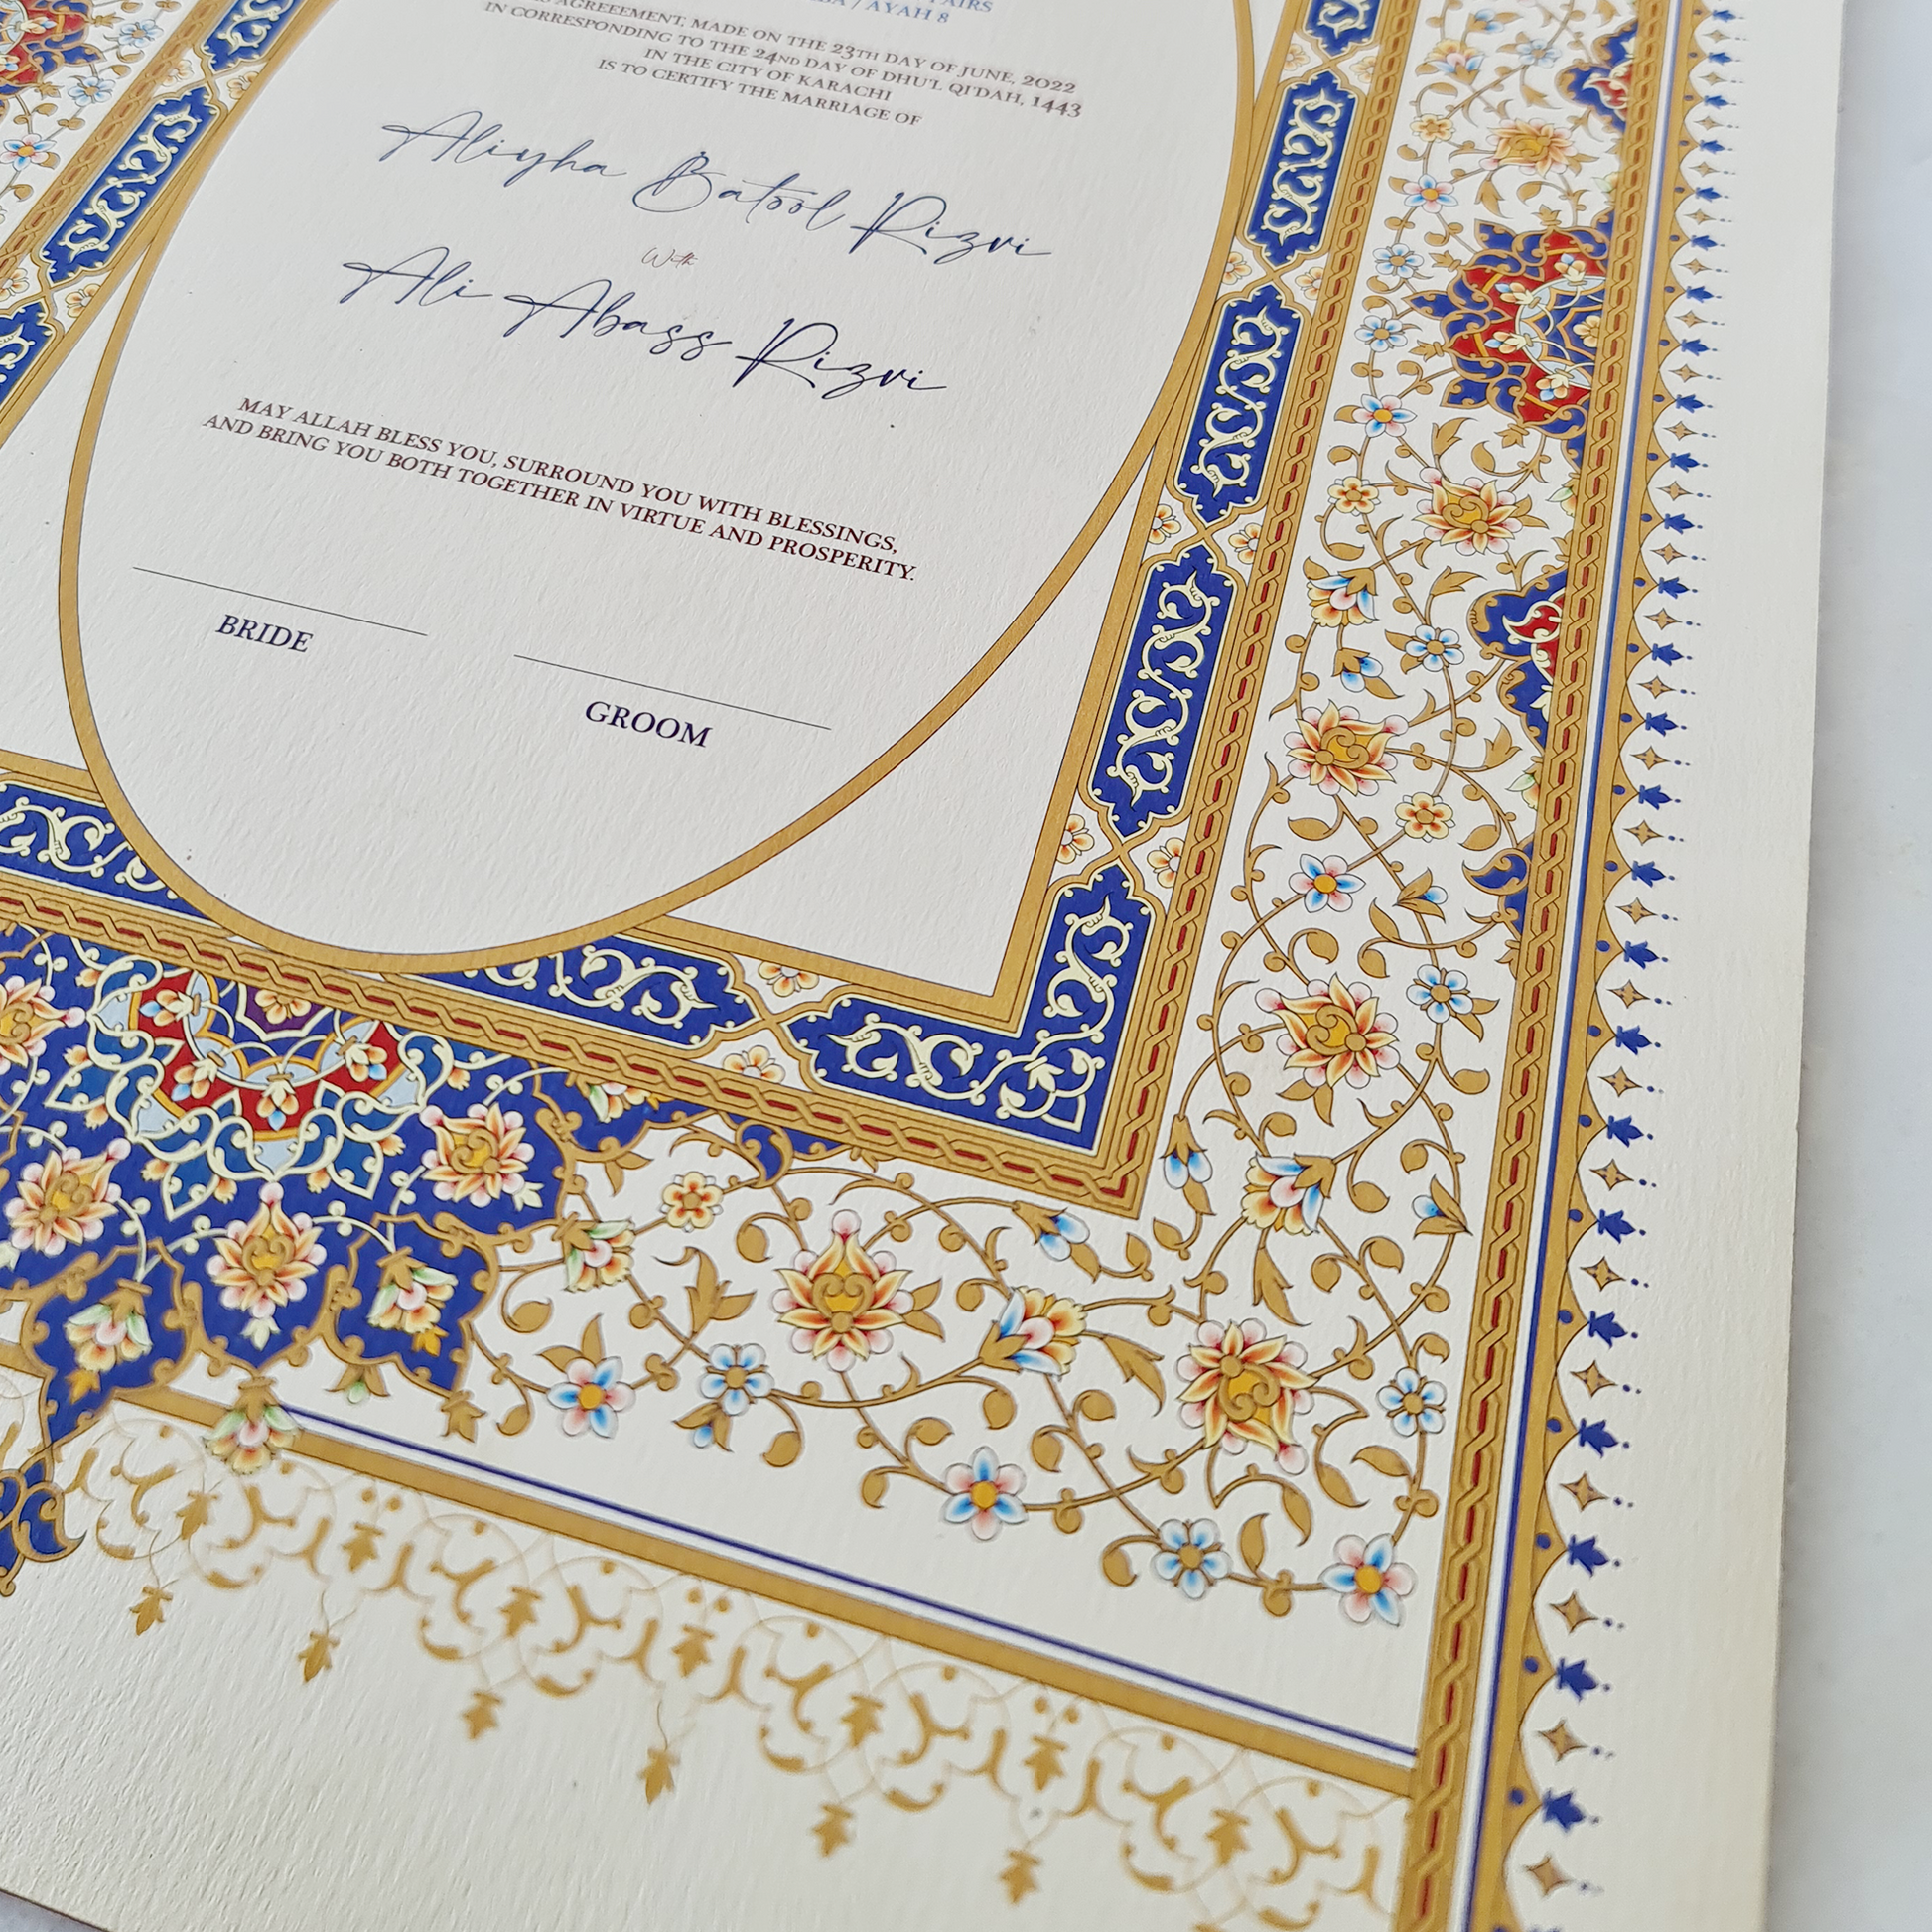 AYAH 8
AGREEEMENT, MADE ON THE 23TH DAY OF JUNE, 2022
IN CORRESPONDING TO THE 24ND DAY OF DHU'L QI'DAH, 1443
IN THE CITY OF KARACHI
IS TO CERTIFY THE MARRIAGE OF
Aliyha Batool Rizvi
With
Ali Abass Rizvi
MAY ALLAH BLESS YOU, SURROUND YOU WITH BLESSINGS,
AND BRING YOU BOTH TOGETHER IN VIRTUE AND PROSPERITY.
BRIDE
GROOM